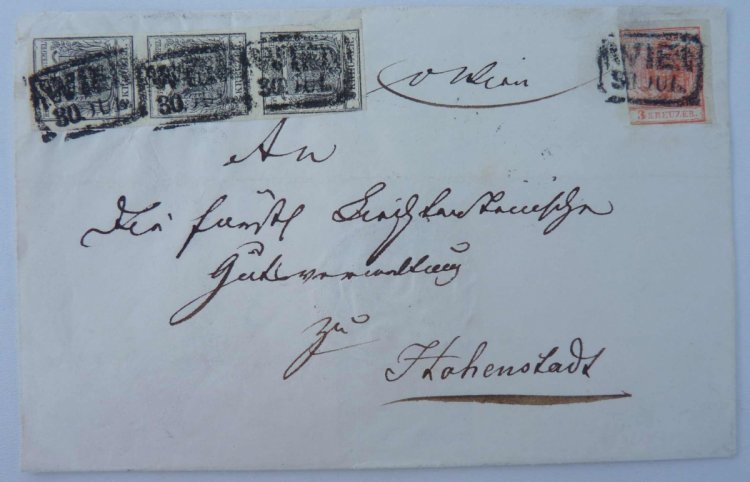 WIEN
30. JUL.
WIEN
30. JUL.
WIEN
30. JUL.
v Wien
WIEN
30. JUL.
3 KREUZER.
An
Die fürstl Liechtensteinische
Gutsverwaltung
zu
Hohenstadt